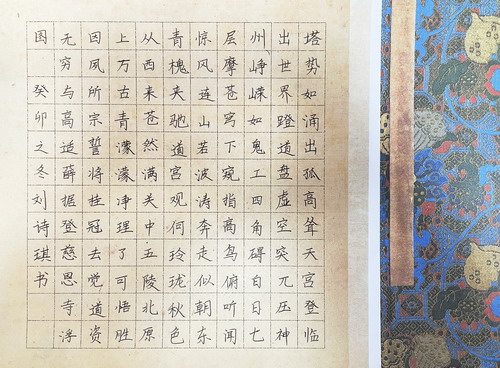 塔势如涌出孤高耸天宫登临
出世界蹬道盘虚空突兀压神
州峥嵘如鬼工四角碍白日七
层摩苍穹下窥指高鸟俯听闻
惊风连山若波涛奔走似朝东
青槐夹驰道宫观何玲珑秋色
从西来苍然满关中五陵北原
上万古青濛濛净理了可悟胜
因夙所宗誓将挂冠去觉道资
无穷与高适薛据登慈恩寺浮
图 癸卯之冬刘诗琪书